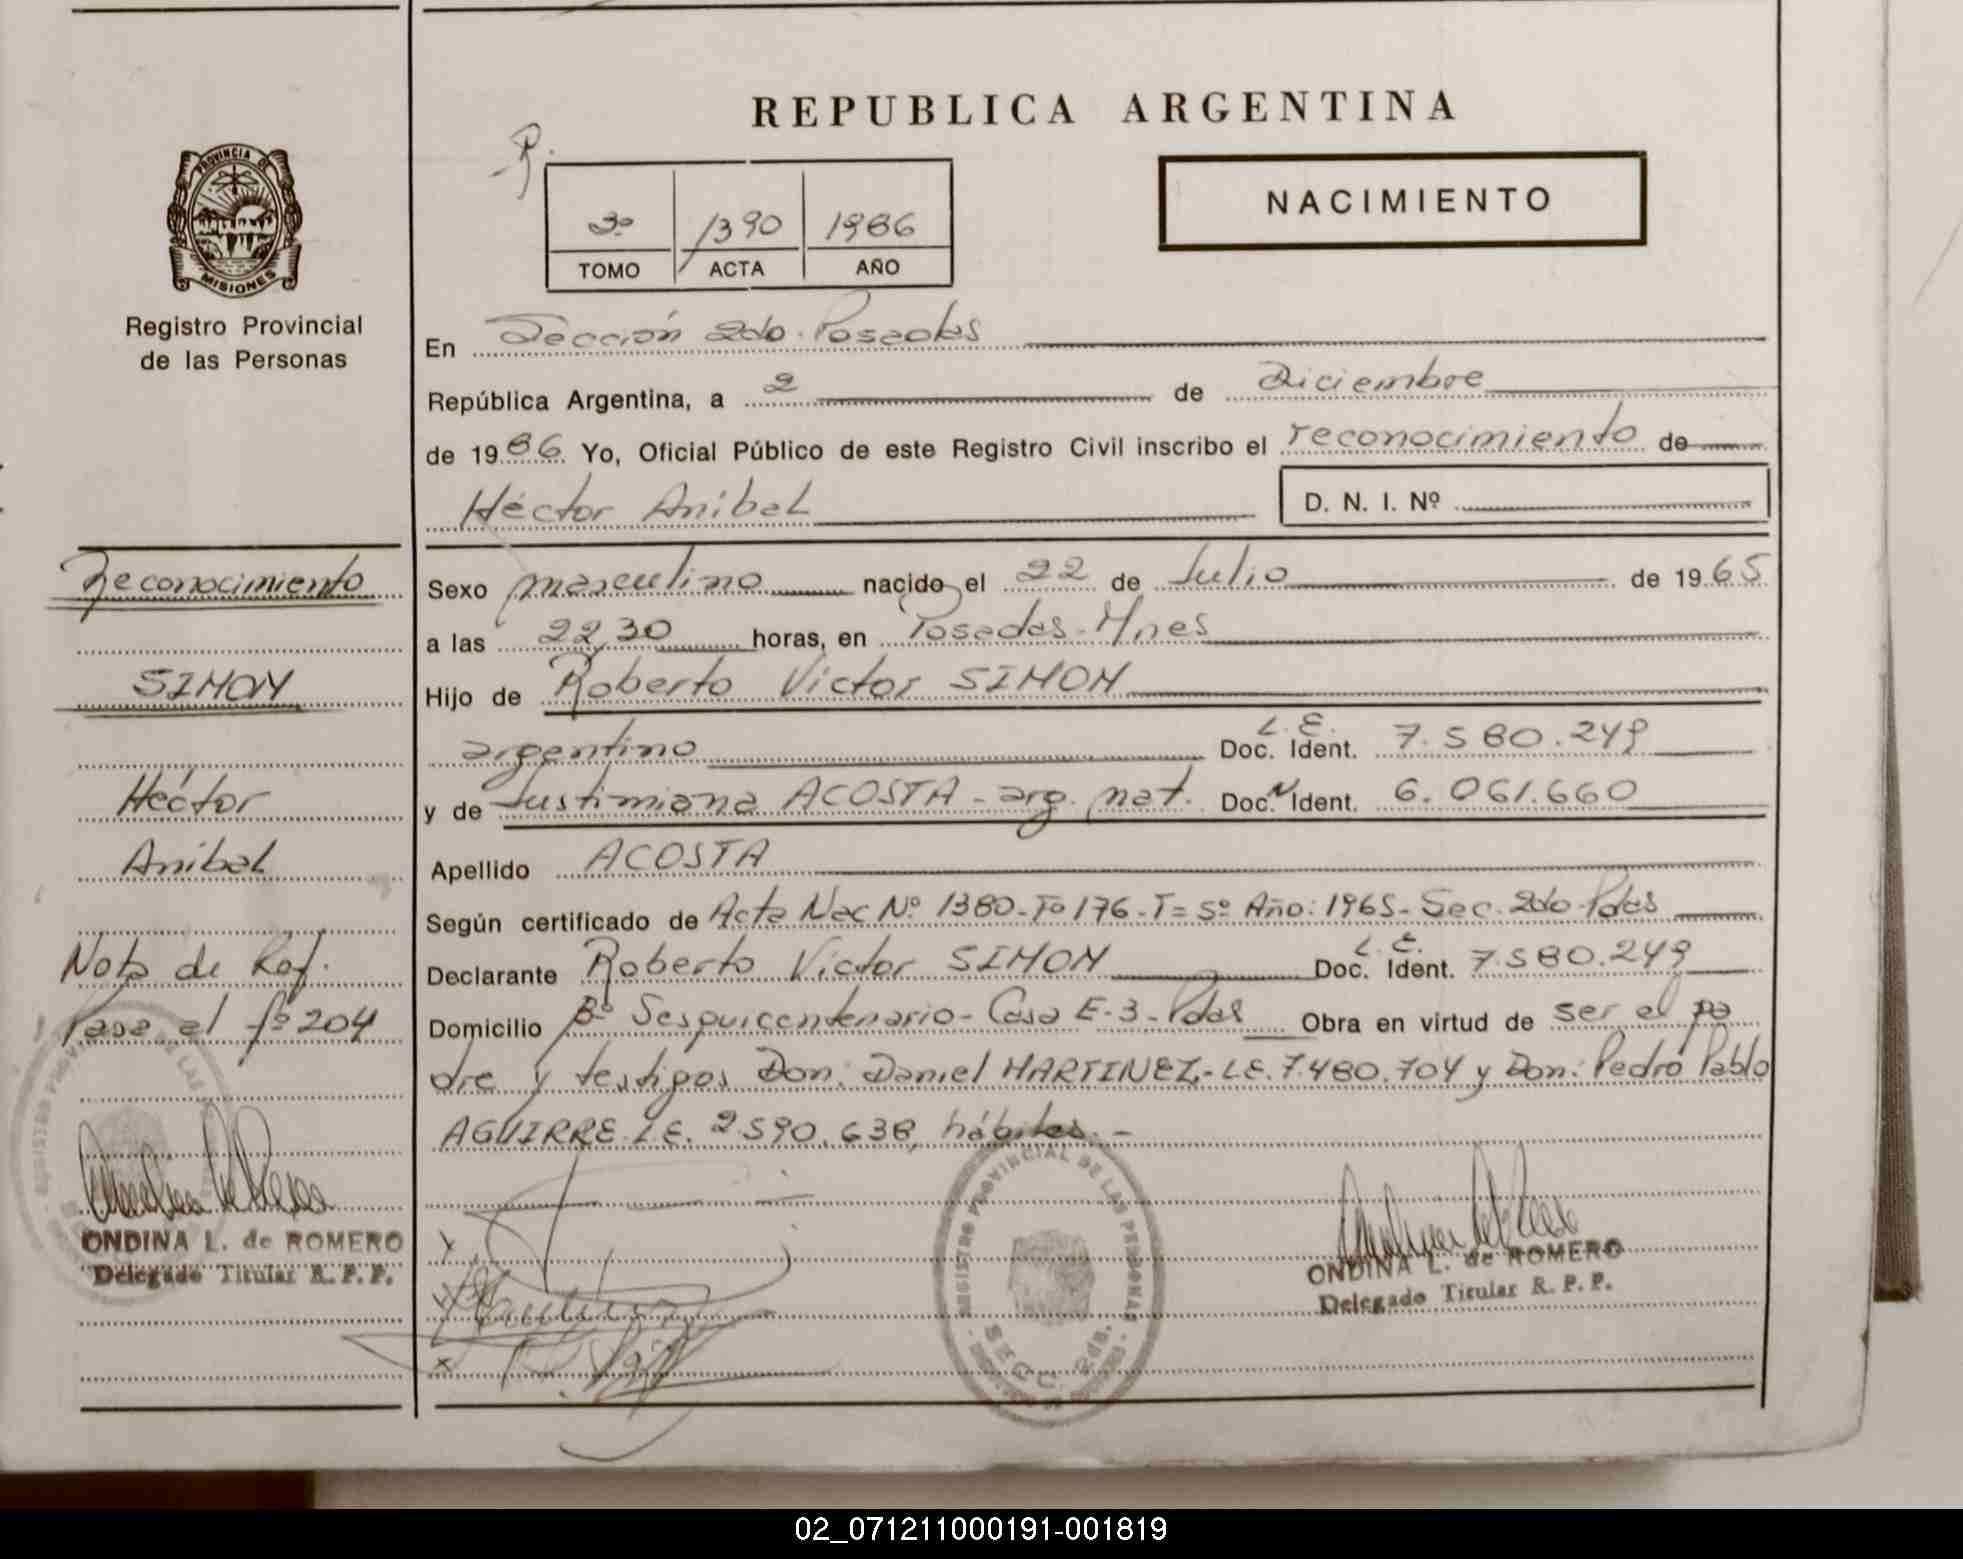 REPUBLICA ARGENTINA
NACIMIENTO
R.
3º 1390 1986
TOMO ACTA AÑO
PROVINCIA DE MISIONES
Registro Provincial
de las Personas
En Sección 2da. Posadas
República Argentina, a 2 de Diciembre
de 1986. Yo, Oficial Público de este Registro Civil inscribo el reconocimiento de
Héctor Aníbal D. N. I. Nº
Sexo masculino nacido el 22 de Julio de 1965
a las 22,30 horas, en Posadas-Mnes
Hijo de Roberto Víctor SIMON
argentino L.E. Doc. Ident. 7.580.249
y de Justimiana ACOSTA - arg. nat. Doc. Ident. 6.061.660
Apellido ACOSTA
Según certificado de Acta Nac Nº 1380-Fº 176-T= 5º Año: 1965- Sec. 2da Pdas
Declarante Roberto Víctor SIMON L.E. Doc. Ident. 7.580.249
Domicilio Bº Sesquicentenario- Casa E-3-Pdas Obra en virtud de ser el pa
dre y testigos Don: Daniel MARTINEZ-LE.7.480.704 y Don: Pedro Pablo
AGUIRRE LE. 2590.638, hábiles.-
Reconocimiento
SIMON
Héctor
Aníbal
Nota de Ref.
Pasa al fº 204
ONDINA L. de ROMERO
Delegado Titular R. P. P.
REGISTRO PROVINCIAL DE LAS PERSONAS
SECC. 2da.
ONDINA L. de ROMERO
Delegado Titular R. P. P.
02_071211000191-001819